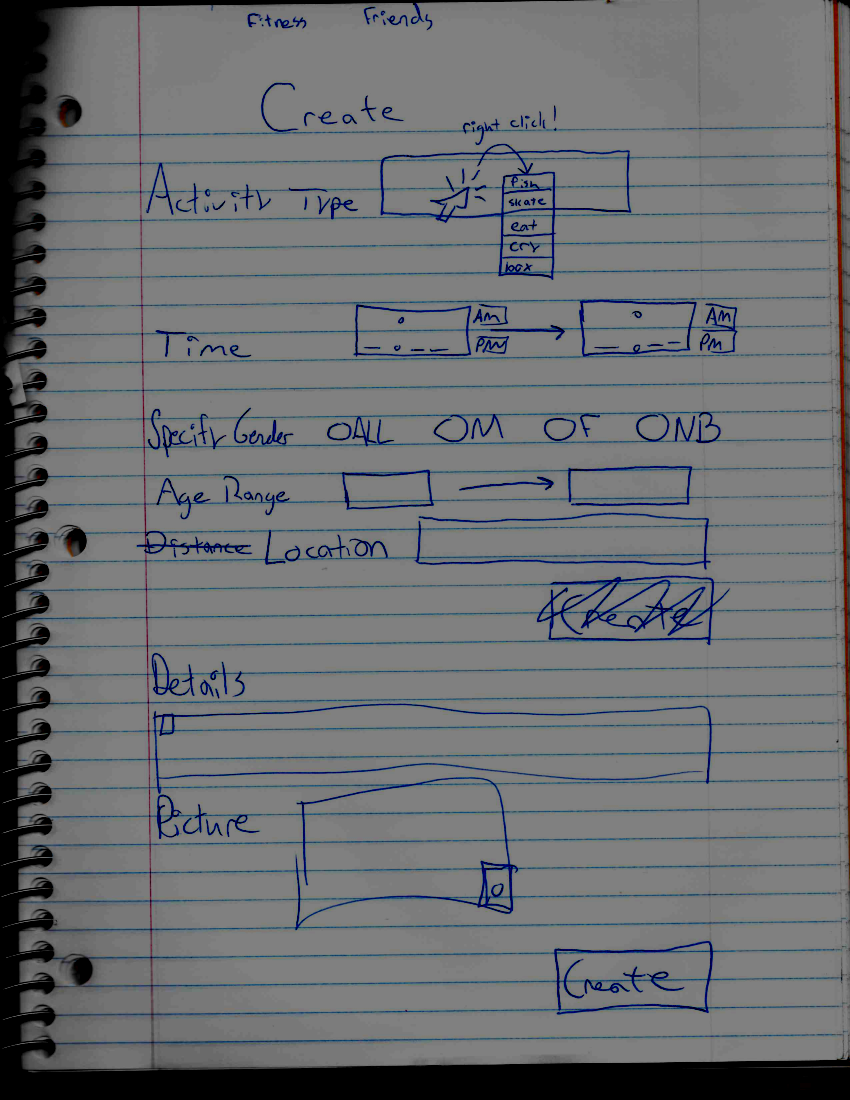 Fitness Friends
Create
right click!
Activity Type
fish
skate
eat
cry
box
Time AM PM AM PM
Specify Gender ALL M F NB
Age Range
Distance Location
Create
Details
Picture
Create